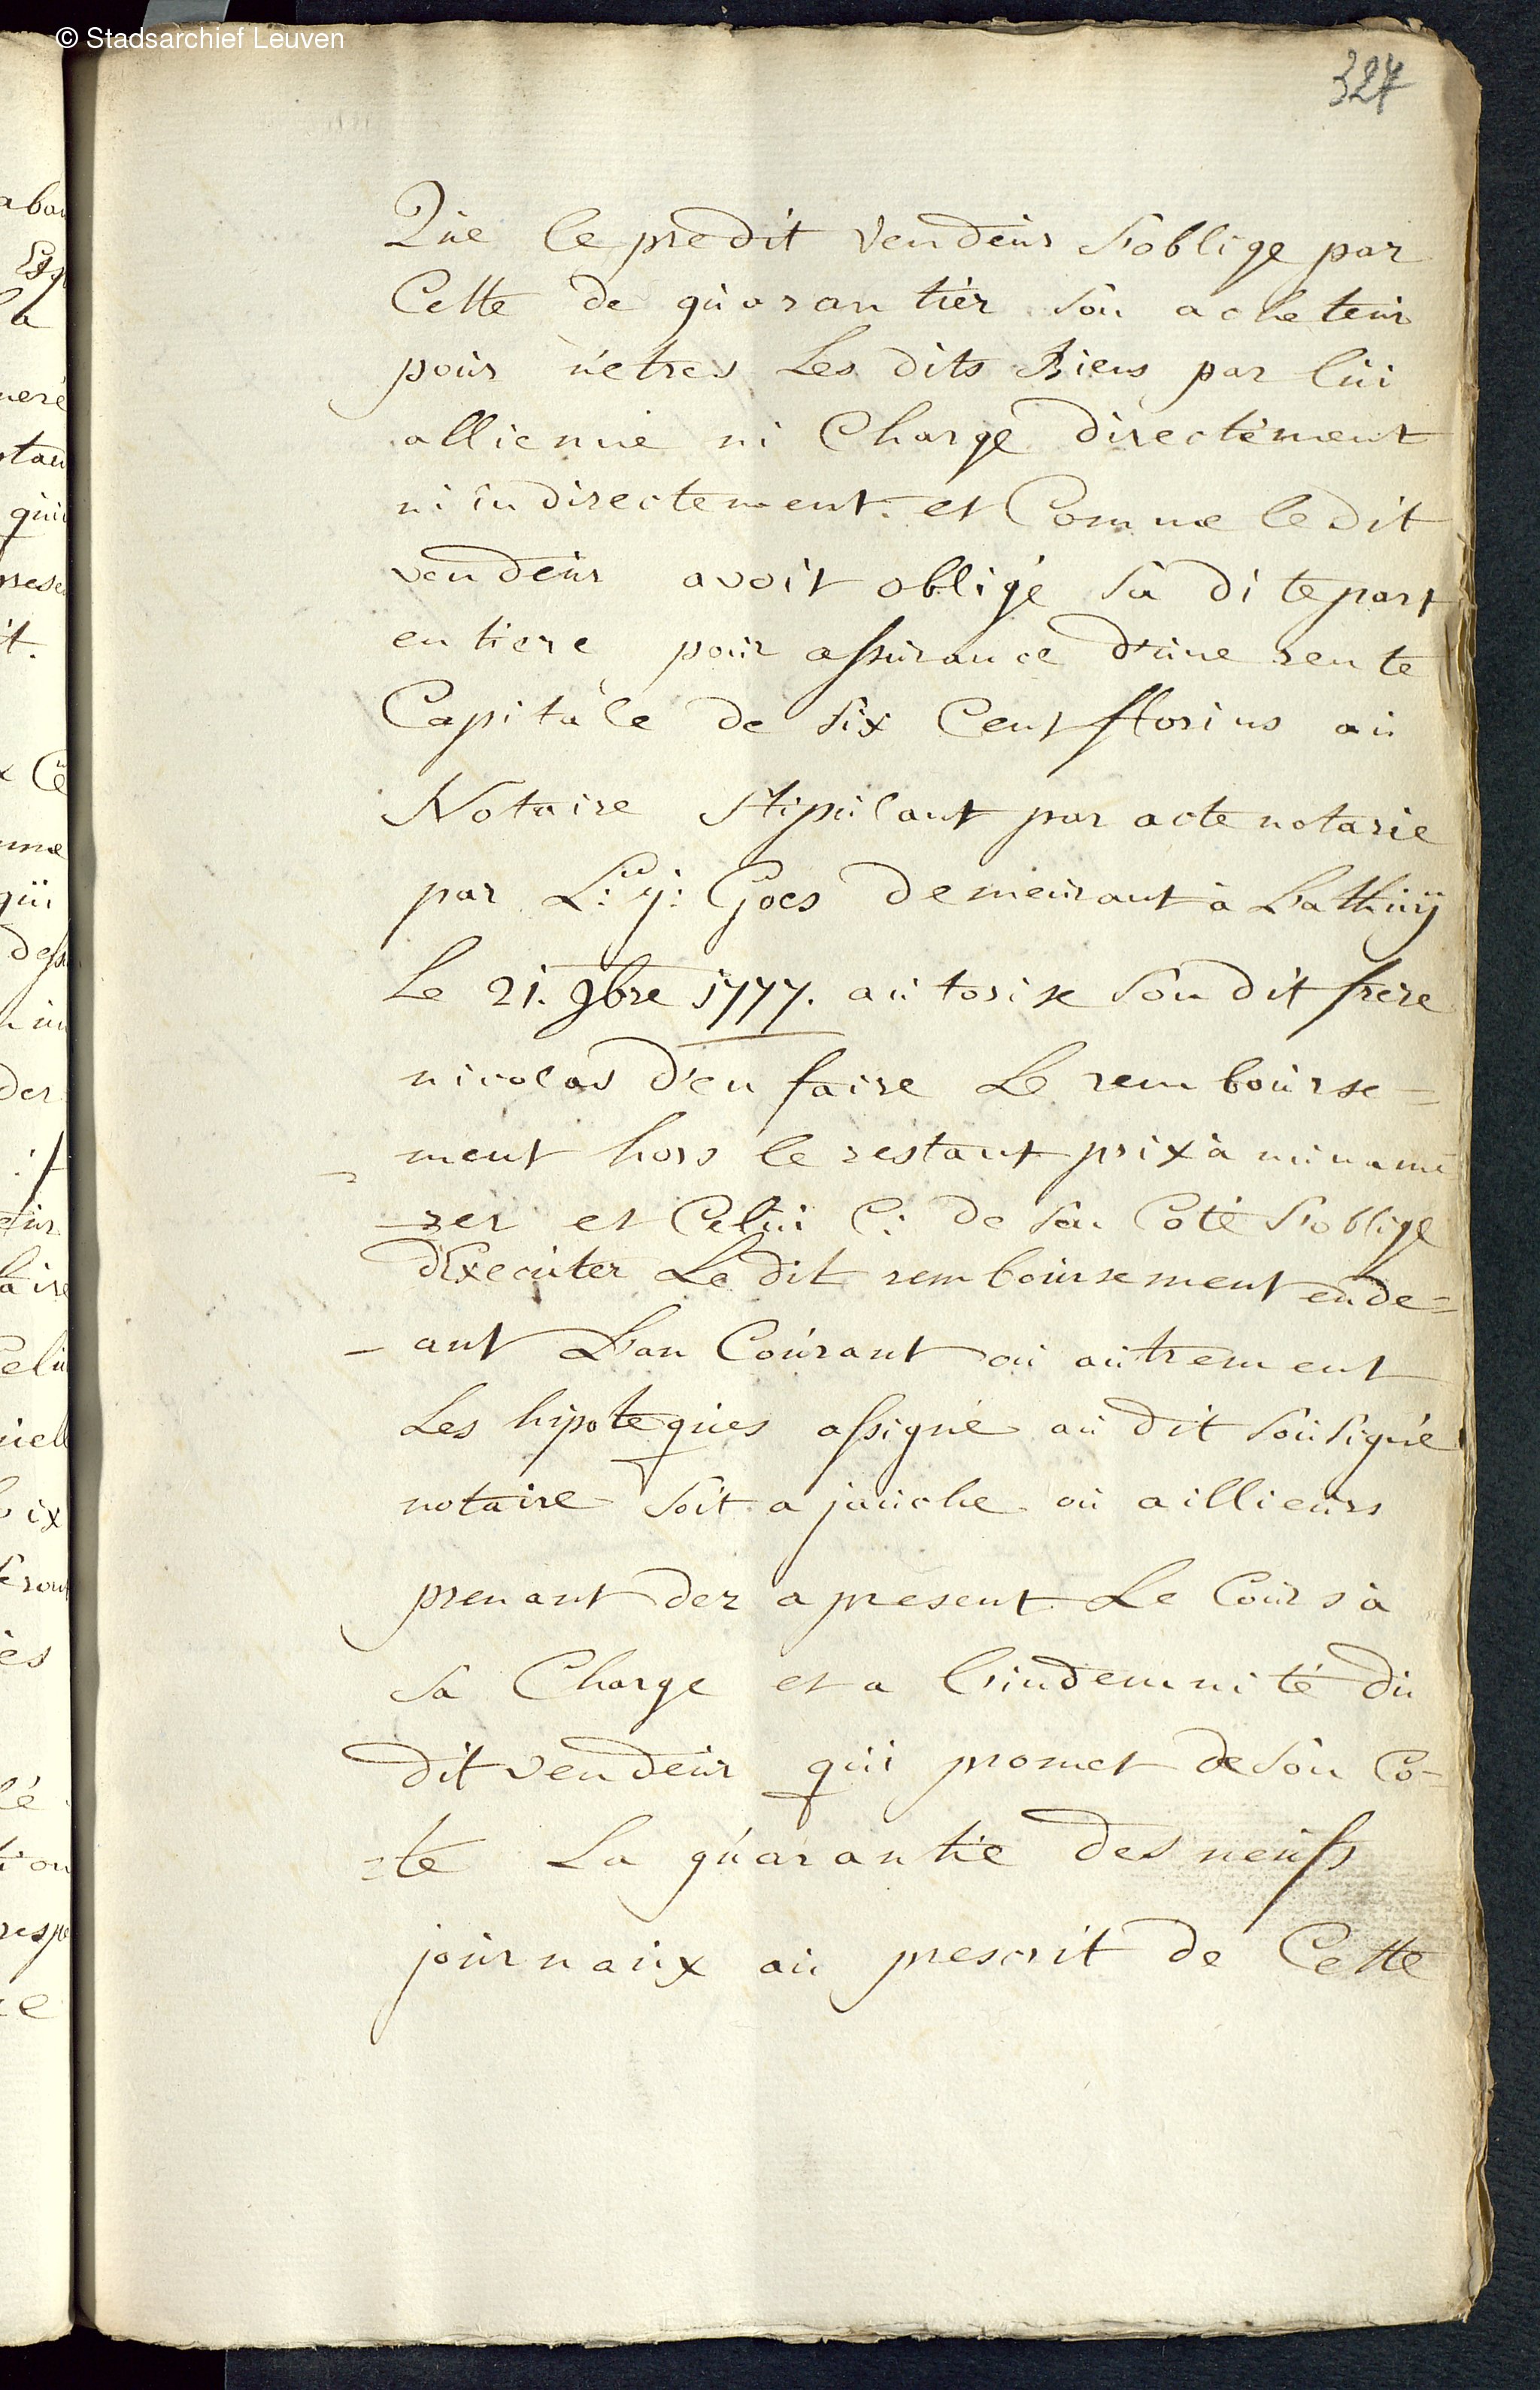 © Stadsarchief Leuven
327
Que le predit vendeur s'oblige par
Cette de guarantier son acheteur
pour n'etres Les dits Biens par lui
allienné ni Chargé directement
ni indirectement. et Comme le dit
vendeur avoit obligé sa dite part
entiere pour assurance d'une rente
Capitale de six Cent florins au
Notaire stipulant par acte notarié
par L: J: Goes demeurant à Lathuÿ
Le 21. 9bre 1777. autorise son dit frere
nicolas d'en faire Le rembourse=
ment hors le restant prix à
=rer et Celui Ci de son Coté s'oblige
d'Executer Le dit remboursement ende=
- ant L'an Courant ou autrement
Les hipoteques assigné au dit sousigné
notaire soit a jauche ou aillieurs
prenant dez a present Le Cours à
sa Charge et a l'indemnité du
dit vendeur qui promet de son Co-
=té La guarantie des neufs
journaux au prescrit de Cette